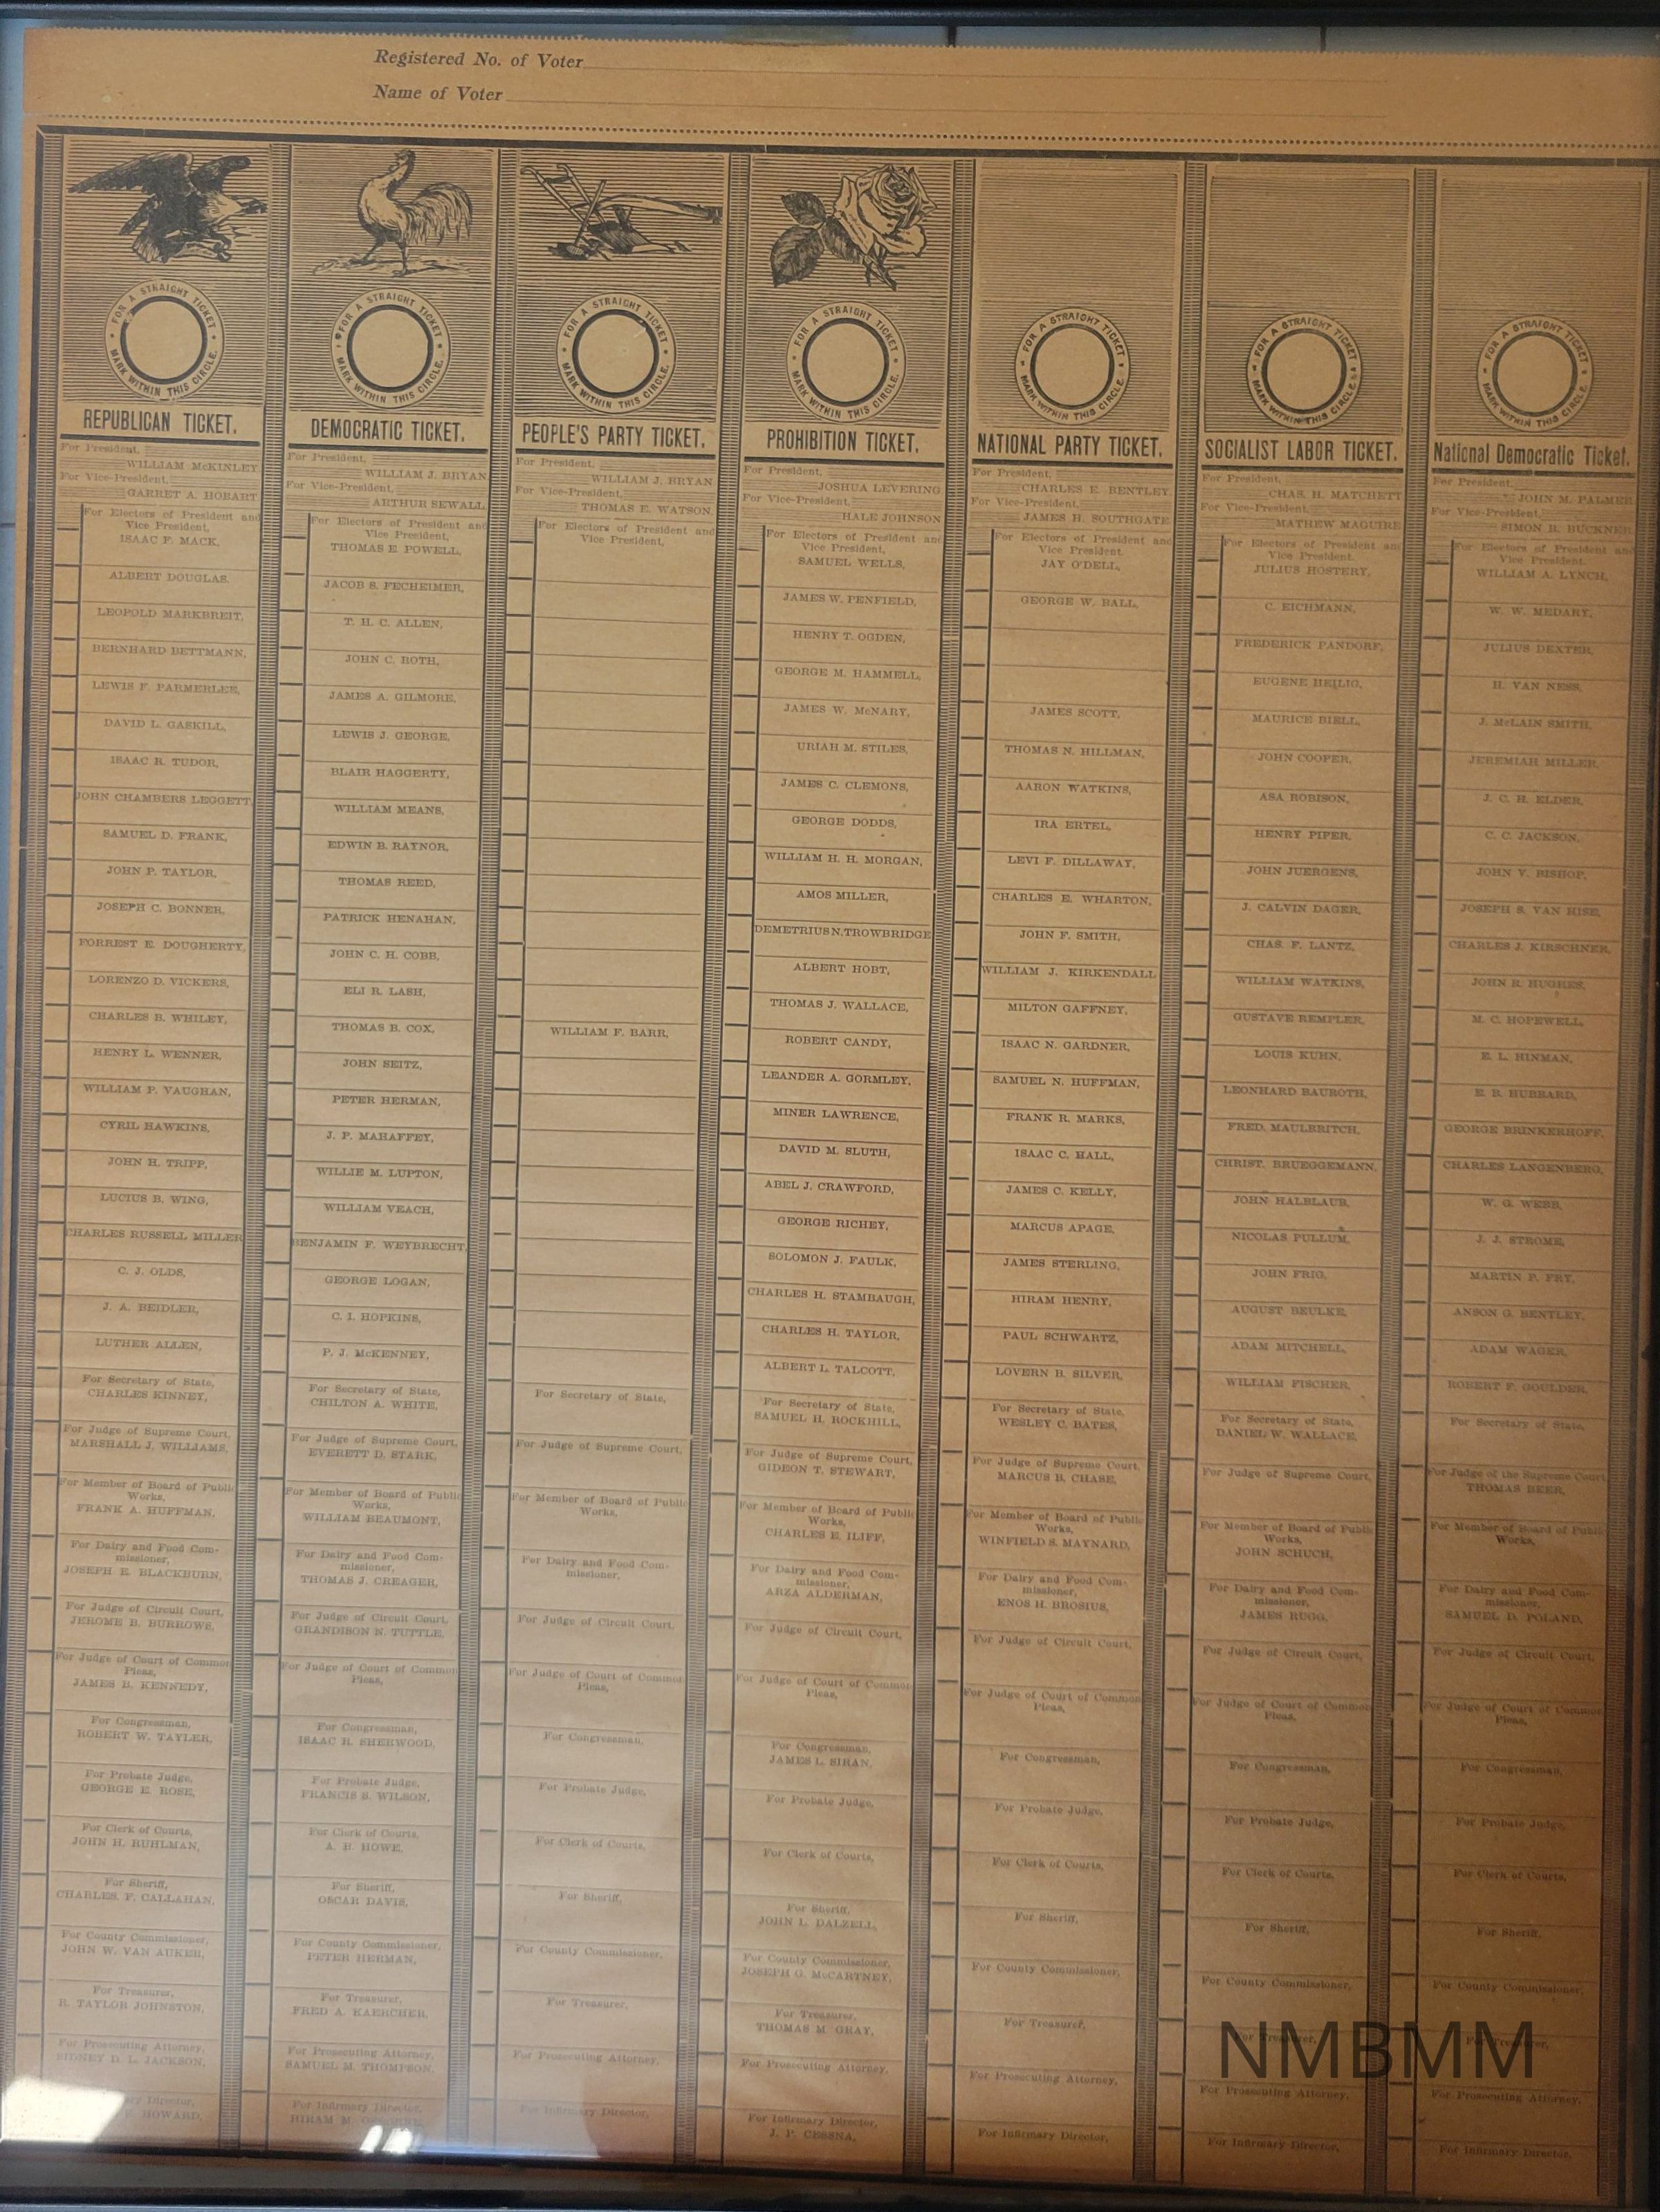 Registered No. of Voter
Name of Voter
FOR A STRAIGHT TICKET
MARK WITHIN THIS CIRCLE.
REPUBLICAN TICKET.
For President,
WILLIAM McKINLEY
For Vice-President,
GARRET A. HOBART
For Electors of President and
Vice President,
ISAAC F. MACK,
ALBERT DOUGLAS,
LEOPOLD MARKBREIT,
BERNHARD BETTMANN,
LEWIS F. PARMERLEE,
DAVID L. GASKILL,
ISAAC R. TUDOR,
JOHN CHAMBERS LEGGETT,
SAMUEL D. FRANK,
JOHN P. TAYLOR,
JOSEPH C. BONNER,
FORREST E. DOUGHERTY,
LORENZO D. VICKERS,
CHARLES B. WHILEY,
HENRY L. WENNER,
WILLIAM P. VAUGHAN,
CYRIL HAWKINS,
JOHN H. TRIPP,
LUCIUS B. WING,
CHARLES RUSSELL MILLER
C. J. OLDS,
J. A. BEIDLER,
LUTHER ALLEN,
For Secretary of State,
CHARLES KINNEY,
For Judge of Supreme Court,
MARSHALL J. WILLIAMS,
For Member of Board of Public
Works,
FRANK A. HUFFMAN,
For Dairy and Food Com-
missioner,
JOSEPH E. BLACKBURN,
For Judge of Circuit Court,
JEROME B. BURROWS,
For Judge of Court of Common
Pleas,
JAMES B. KENNEDY,
For Congressman,
ROBERT W. TAYLER,
For Probate Judge,
GEORGE E. ROSE,
For Clerk of Courts,
JOHN H. RUHLMAN,
For Sheriff,
CHARLES. F. CALLAHAN,
For County Commissioner,
JOHN W. VAN AUKER,
For Treasurer,
R. TAYLOR JOHNSTON,
For Prosecuting Attorney,
SIDNEY D. L. JACKSON,
Director,
HOWARD,
FOR A STRAIGHT TICKET
MARK WITHIN THIS CIRCLE.
DEMOCRATIC TICKET.
For President,
WILLIAM J. BRYAN
For Vice-President,
ARTHUR SEWALL
For Electors of President and
Vice President,
THOMAS E. POWELL,
JACOB S. FECHEIMER,
T. H. C. ALLEN,
JOHN C. ROTH,
JAMES A. GILMORE,
LEWIS J. GEORGE,
BLAIR HAGGERTY,
WILLIAM MEANS,
EDWIN B. RAYNOR,
THOMAS REED,
PATRICK HENAHAN,
JOHN C. H. COBB,
ELI R. LASH,
THOMAS B. COX,
JOHN SEITZ,
PETER HERMAN,
J. P. MAHAFFEY,
WILLIE M. LUPTON,
WILLIAM VEACH,
BENJAMIN F. WEYBRECHT,
GEORGE LOGAN,
C. I. HOPKINS,
P. J. McKENNEY,
For Secretary of State,
CHILTON A. WHITE,
For Judge of Supreme Court,
EVERETT D. STARK,
For Member of Board of Public
Works,
WILLIAM BEAUMONT,
For Dairy and Food Com-
missioner,
THOMAS J. CREAGER,
For Judge of Circuit Court,
GRANDISON N. TUTTLE,
For Judge of Court of Common
Pleas,
For Congressman,
ISAAC R. SHERWOOD,
For Probate Judge,
FRANCIS S. WILSON,
For Clerk of Courts,
A. B. HOWE,
For Sheriff,
OSCAR DAVIS,
For County Commissioner,
PETER HERMAN,
For Treasurer,
FRED A. KAERCHER,
For Prosecuting Attorney,
SAMUEL M. THOMPSON,
For Infirmary Director,
HIRAM M.
FOR A STRAIGHT TICKET
MARK WITHIN THIS CIRCLE.
PEOPLE'S PARTY TICKET.
For President,
WILLIAM J. BRYAN
For Vice-President,
THOMAS E. WATSON
For Electors of President and
Vice President,
WILLIAM F. BARR,
For Secretary of State,
For Judge of Supreme Court,
For Member of Board of Public
Works,
For Dairy and Food Com-
missioner,
For Judge of Circuit Court,
For Judge of Court of Common
Pleas,
For Congressman,
For Probate Judge,
For Clerk of Courts,
For Sheriff,
For County Commissioner,
For Treasurer,
For Prosecuting Attorney,
For Infirmary Director,
FOR A STRAIGHT TICKET
MARK WITHIN THIS CIRCLE.
PROHIBITION TICKET.
For President,
JOSHUA LEVERING
For Vice-President,
HALE JOHNSON
For Electors of President and
Vice President,
SAMUEL WELLS,
JAMES W. PENFIELD,
HENRY T. OGDEN,
GEORGE M. HAMMELL,
JAMES W. McNARY,
URIAH M. STILES,
JAMES C. CLEMONS,
GEORGE DODDS,
WILLIAM H. H. MORGAN,
AMOS MILLER,
DEMETRIUS N. TROWBRIDGE
ALBERT HOBT,
THOMAS J. WALLACE,
ROBERT CANDY,
LEANDER A. GORMLEY,
MINER LAWRENCE,
DAVID M. SLUTH,
ABEL J. CRAWFORD,
GEORGE RICHEY,
SOLOMON J. FAULK,
CHARLES H. STAMBAUGH,
CHARLES H. TAYLOR,
ALBERT L. TALCOTT,
For Secretary of State,
SAMUEL H. ROCKHILL,
For Judge of Supreme Court,
GIDEON T. STEWART,
For Member of Board of Public
Works,
CHARLES E. ILIFF,
For Dairy and Food Com-
missioner,
ARZA ALDERMAN,
For Judge of Circuit Court,
For Judge of Court of Common
Pleas,
For Congressman,
JAMES L. SIRAN,
For Probate Judge,
For Clerk of Courts,
For Sheriff,
JOHN L. DALZELL,
For County Commissioner,
JOSEPH G. McCARTNEY,
For Treasurer,
THOMAS M. GRAY,
For Prosecuting Attorney,
For Infirmary Director,
J. P. CESSNA,
FOR A STRAIGHT TICKET
MARK WITHIN THIS CIRCLE.
NATIONAL PARTY TICKET.
For President,
CHARLES E. BENTLEY
For Vice-President,
JAMES H. SOUTHGATE
For Electors of President and
Vice President.
JAY O'DELL,
GEORGE W. BALL,
JAMES SCOTT,
THOMAS N. HILLMAN,
AARON WATKINS,
IRA ERTEL,
LEVI F. DILLAWAY,
CHARLES E. WHARTON,
JOHN F. SMITH,
WILLIAM J. KIRKENDALL
MILTON GAFFNEY,
ISAAC N. GARDNER,
SAMUEL N. HUFFMAN,
FRANK R. MARKS,
ISAAC C. HALL,
JAMES C. KELLY,
MARCUS APAGE,
JAMES STERLING,
HIRAM HENRY,
PAUL SCHWARTZ,
LOVERN B. SILVER,
For Secretary of State,
WESLEY C. BATES,
For Judge of Supreme Court,
MARCUS B. CHASE,
For Member of Board of Public
Works,
WINFIELD S. MAYNARD,
For Dairy and Food Com-
missioner,
ENOS H. BROSIUS,
For Judge of Circuit Court,
For Judge of Court of Common
Pleas,
For Congressman,
For Probate Judge,
For Clerk of Courts,
For Sheriff,
For County Commissioner,
For Treasurer,
For Prosecuting Attorney,
For Infirmary Director,
FOR A STRAIGHT TICKET
MARK WITHIN THIS CIRCLE.
SOCIALIST LABOR TICKET.
For President,
CHAS. H. MATCHETT
For Vice-President,
MATHEW MAGUIRE
For Electors of President and
Vice President.
JULIUS HOSTERY,
C. EICHMANN,
FREDERICK PANDORF,
EUGENE HEILIG,
MAURICE BIELL,
JOHN COOPER,
ASA ROBISON,
HENRY PIPER,
JOHN JUERGENS,
J. CALVIN DAGER,
CHAS. F. LANTZ,
WILLIAM WATKINS,
GUSTAVE REMPLER,
LOUIS KUHN,
LEONHARD BAUROTH,
FRED. MAULBRITCH,
CHRIST. BRUEGGEMANN,
JOHN HALBLAUB,
NICOLAS PULLUM,
JOHN FRIG,
AUGUST BEULKE,
ADAM MITCHELL,
WILLIAM FISCHER,
For Secretary of State,
DANIEL W. WALLACE,
For Judge of Supreme Court,
For Member of Board of Public
Works,
JOHN SCHUCH,
For Dairy and Food Com-
missioner,
JAMES RUGG,
For Judge of Circuit Court,
For Judge of Court of Common
Pleas,
For Congressman,
For Probate Judge,
For Clerk of Courts,
For Sheriff,
For County Commissioner,
For Treasurer,
For Prosecuting Attorney,
For Infirmary Director,
FOR A STRAIGHT TICKET
MARK WITHIN THIS CIRCLE.
National Democratic Ticket.
For President,
JOHN M. PALMER
For Vice-President,
SIMON B. BUCKNER
For Electors of President and
Vice-President.
WILLIAM A. LYNCH,
W. W. MEDARY,
JULIUS DEXTER,
H. VAN NESS,
J. McLAIN SMITH,
JEREMIAH MILLER,
J. C. H. ELDER,
C. C. JACKSON,
JOHN V. BISHOP,
JOSEPH S. VAN HISE,
CHARLES J. KIRSCHNER,
JOHN R. HUGHES,
M. C. HOPEWELL,
E. L. HINMAN,
E. B. HUBBARD,
GEORGE BRINKERHOFF,
CHARLES LANGENBERG,
W. G. WEBB,
J. J. STROME,
MARTIN P. FRY,
ANSON G. BENTLEY,
ADAM WAGER,
ROBERT F. GOULDER,
For Secretary of State,
For Judge of the Supreme Court
THOMAS BEER,
For Member of Board of Public
Works,
For Dairy and Food Com-
missioner,
SAMUEL D. POLAND,
For Judge of Circuit Court,
For Judge of Court of Common
Pleas,
For Congressman,
For Probate Judge,
For Clerk of Courts,
For Sheriff,
For County Commissioner,
For Treasurer,
For Prosecuting Attorney,
For Infirmary Director,
NMBMM